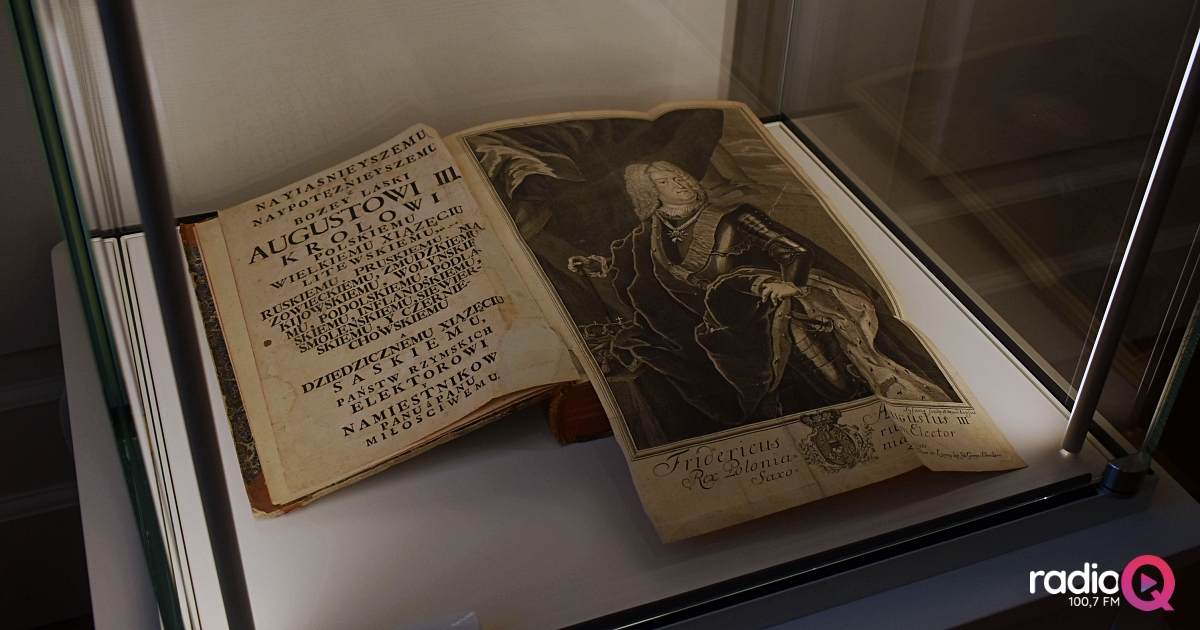 NAYIASNIEYSZEMU
NAYPOTĘZNIEYSZEMU
BOZEY ŁASKI
AUGUSTOWI III.
KROLOWI
POLSKIEMU
WIELKIEMU XIĄZĘCIU
LITEWSKIEMU,
RUSKIEMU, PRUSKIEMU, MA
ZOWIECKIEMU, ZMUDZKIEMU,
KIIOWSKIEMU, WOŁYNSKIE
MU, PODOLSKIEMU, PODLA
SKIEMU, INFLANDSKIEMU,
SMOLENSKIEMU, SIEWIER-
SKIEMU Y CZERNIE-
CHOWSKIEMU
DZIEDZICZNEMU XIĄZĘCIU
SASKIEMU.
PANSTW RZYMSKICH
ELEKTOROWI
NAMIESTNIKOW
PANU, PANU,
MIŁOSCIWEMU.
Fridericus Augustus III
Rex Polonia- rum Elector
Saxo- nia
radioQ
100,7 FM